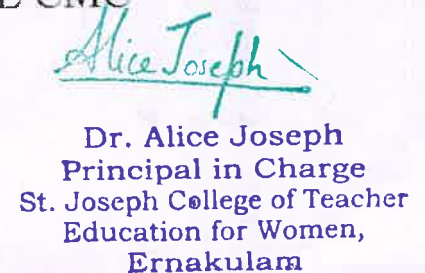 CMC
Alice Joseph
Dr. Alice Joseph
Principal in Charge
St. Joseph College of Teacher
Education for Women,
Ernakulam